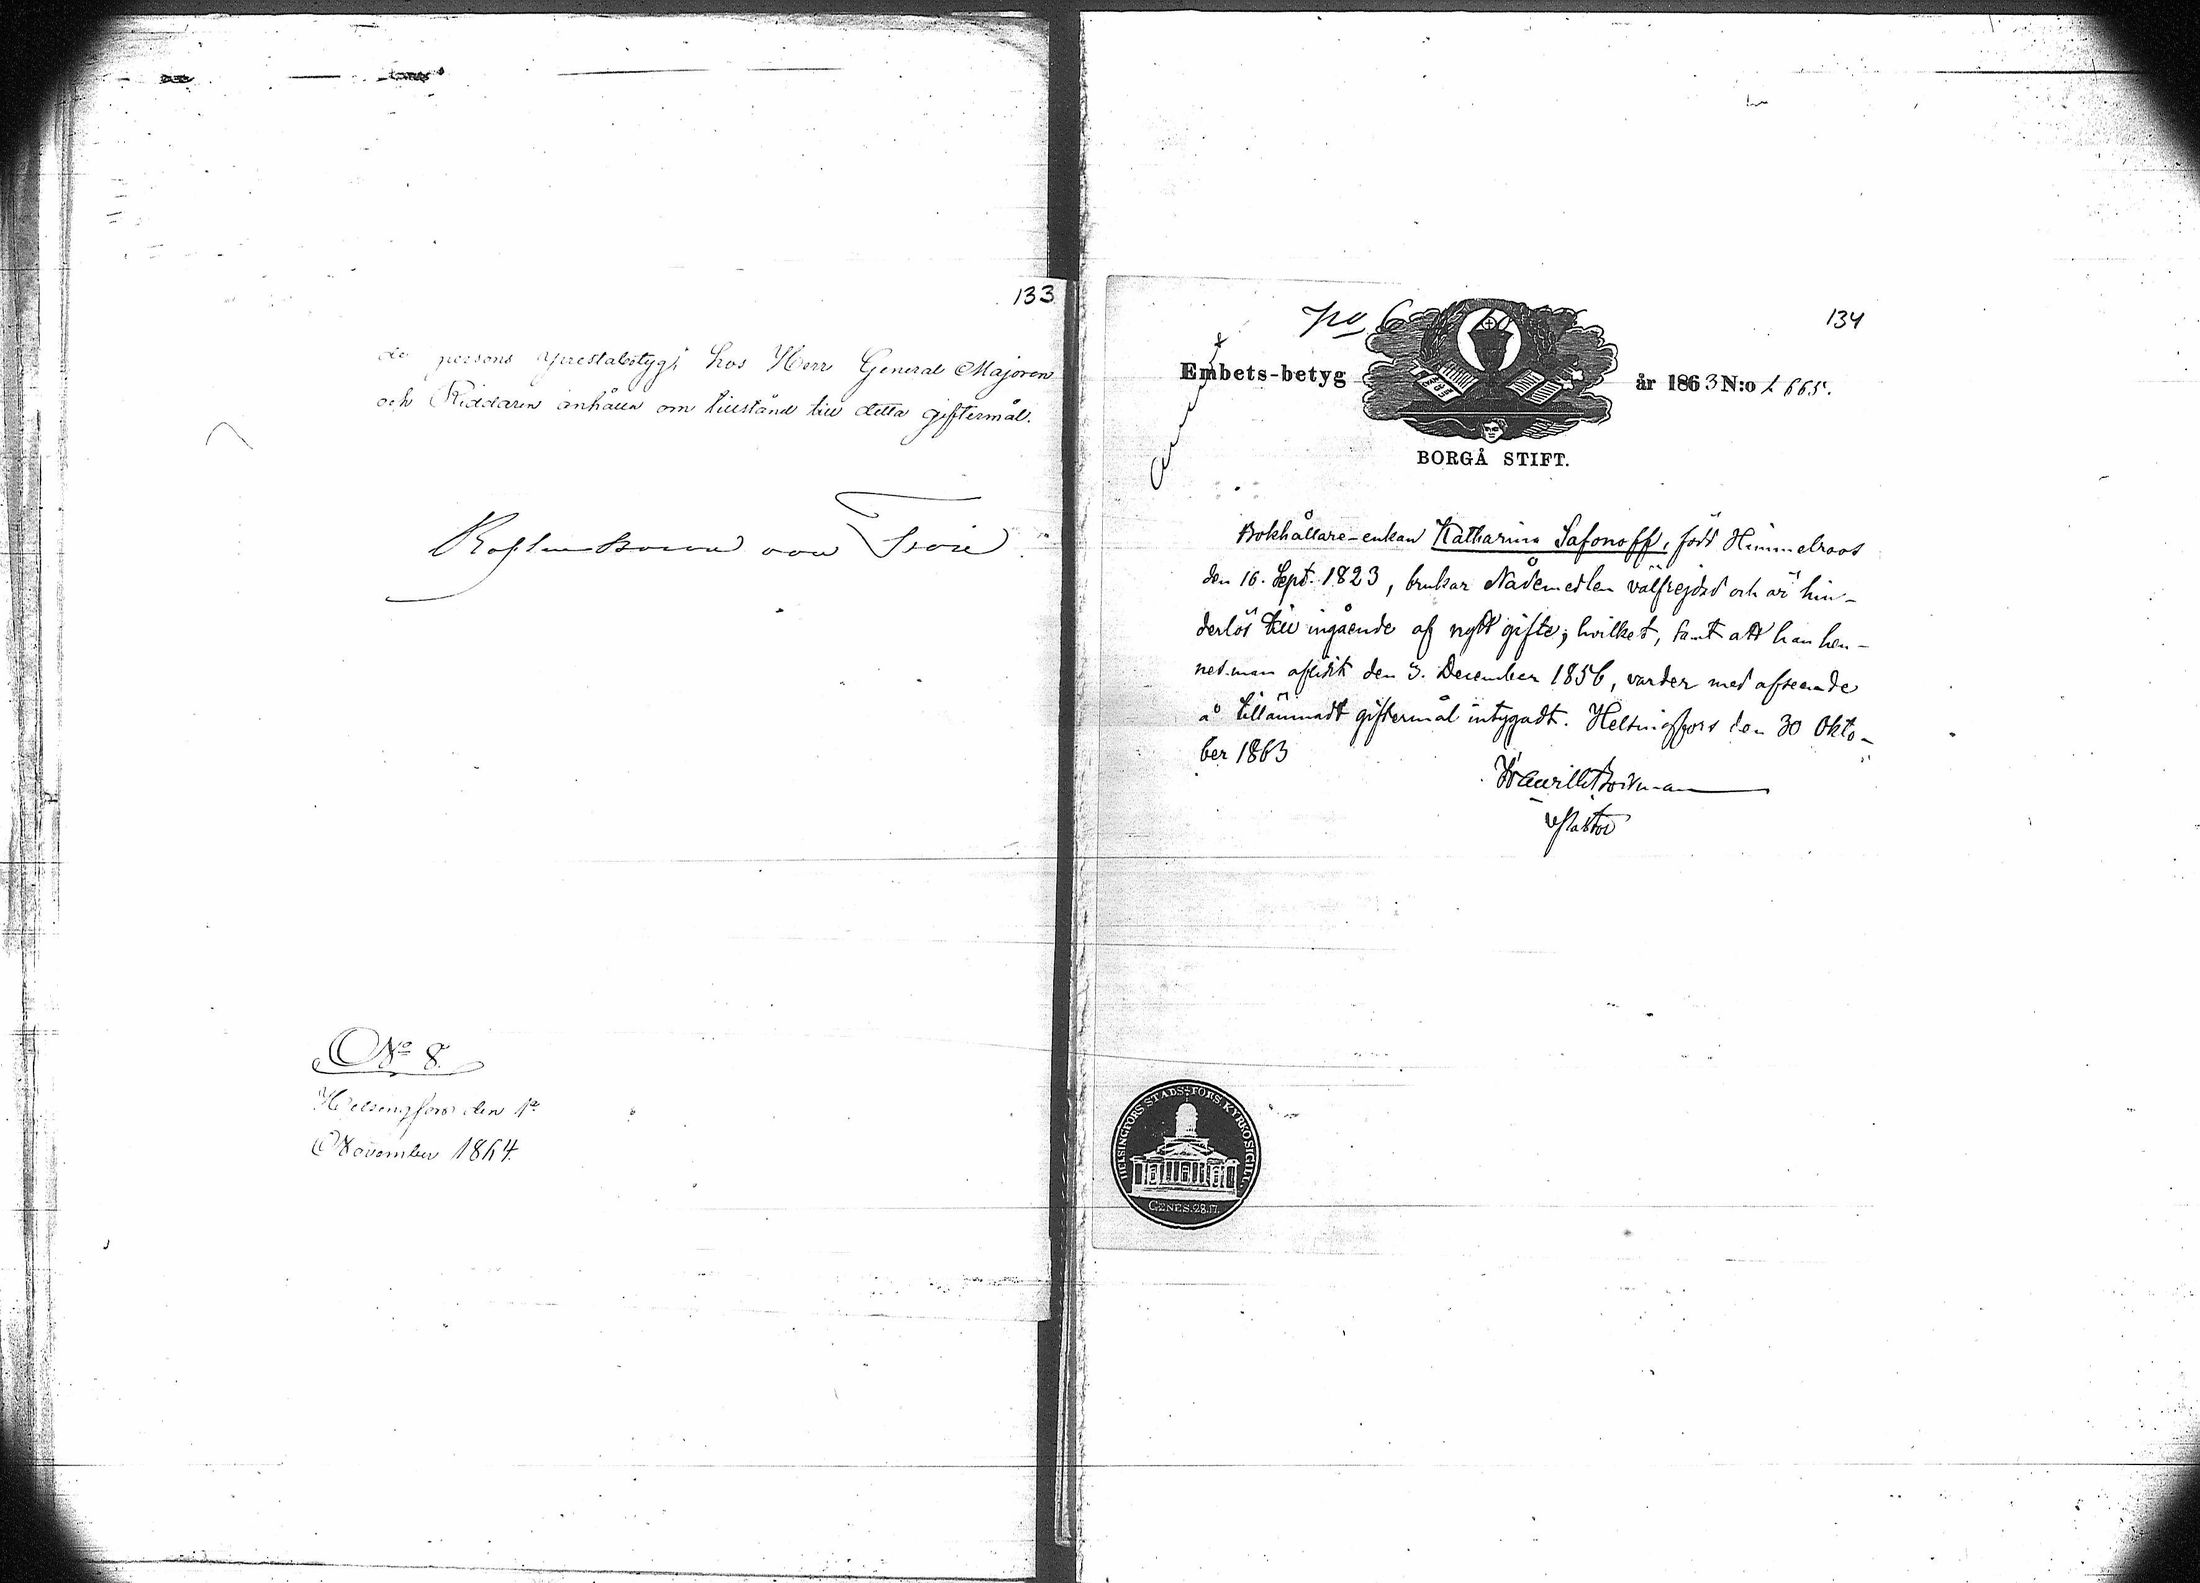 133
de persons prestabetyg, hos Herr General Majoren
och Riddaren anhålla om tillstånd till detta giftermål.
von
No 8.
Helsingfors den 1a
November 1864.
134
Embets-betyg
år 1863 N:o 1665.
BORGÅ STIFT.
Bokhållare-enkan Katharina Safonoff, född Himmelroos
den 16. Sept. 1823, brukar Nådemedlen välfrejdad och är hin-
derlös till ingående af nytt gifte; hvilket, samt att han hen-
nes man aflidit den 3. December 1856, varder med afseende
å tillämnadt giftermål intygadt. Helsingfors den 30 Okto-
ber 1863
v Pastor
HELSINGFORS STADS FÖRS. KYRKOSIGILL.
GENES. 28.17.